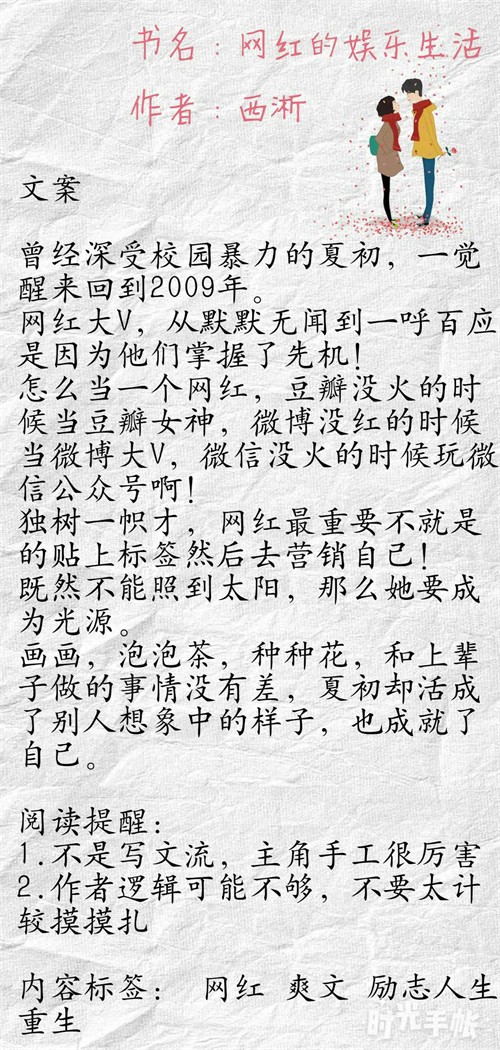 书名：网红的娱乐生活
作者：西淅
文案
曾经深受校园暴力的夏初，一觉
醒来回到2009年。
网红大V，从默默无闻到一呼百应
是因为他们掌握了先机！
怎么当一个网红，豆瓣没火的时
候当豆瓣女神，微博没红的时候
当微博大V，微信没火的时候玩微
信公众号啊！
独树一帜才，网红最重要不就是
的贴上标签然后去营销自己！
既然不能照到太阳，那么她要成
为光源。
画画，泡泡茶，种种花，和上辈
子做的事情没有差，夏初却活成
了别人想象中的样子，也成就了
自己。
阅读提醒：
1.不是写文流，主角手工很厉害
2.作者逻辑可能不够，不要太计
较摸摸扎
内容标签： 网红 爽文 励志人生
重生
时光手帐